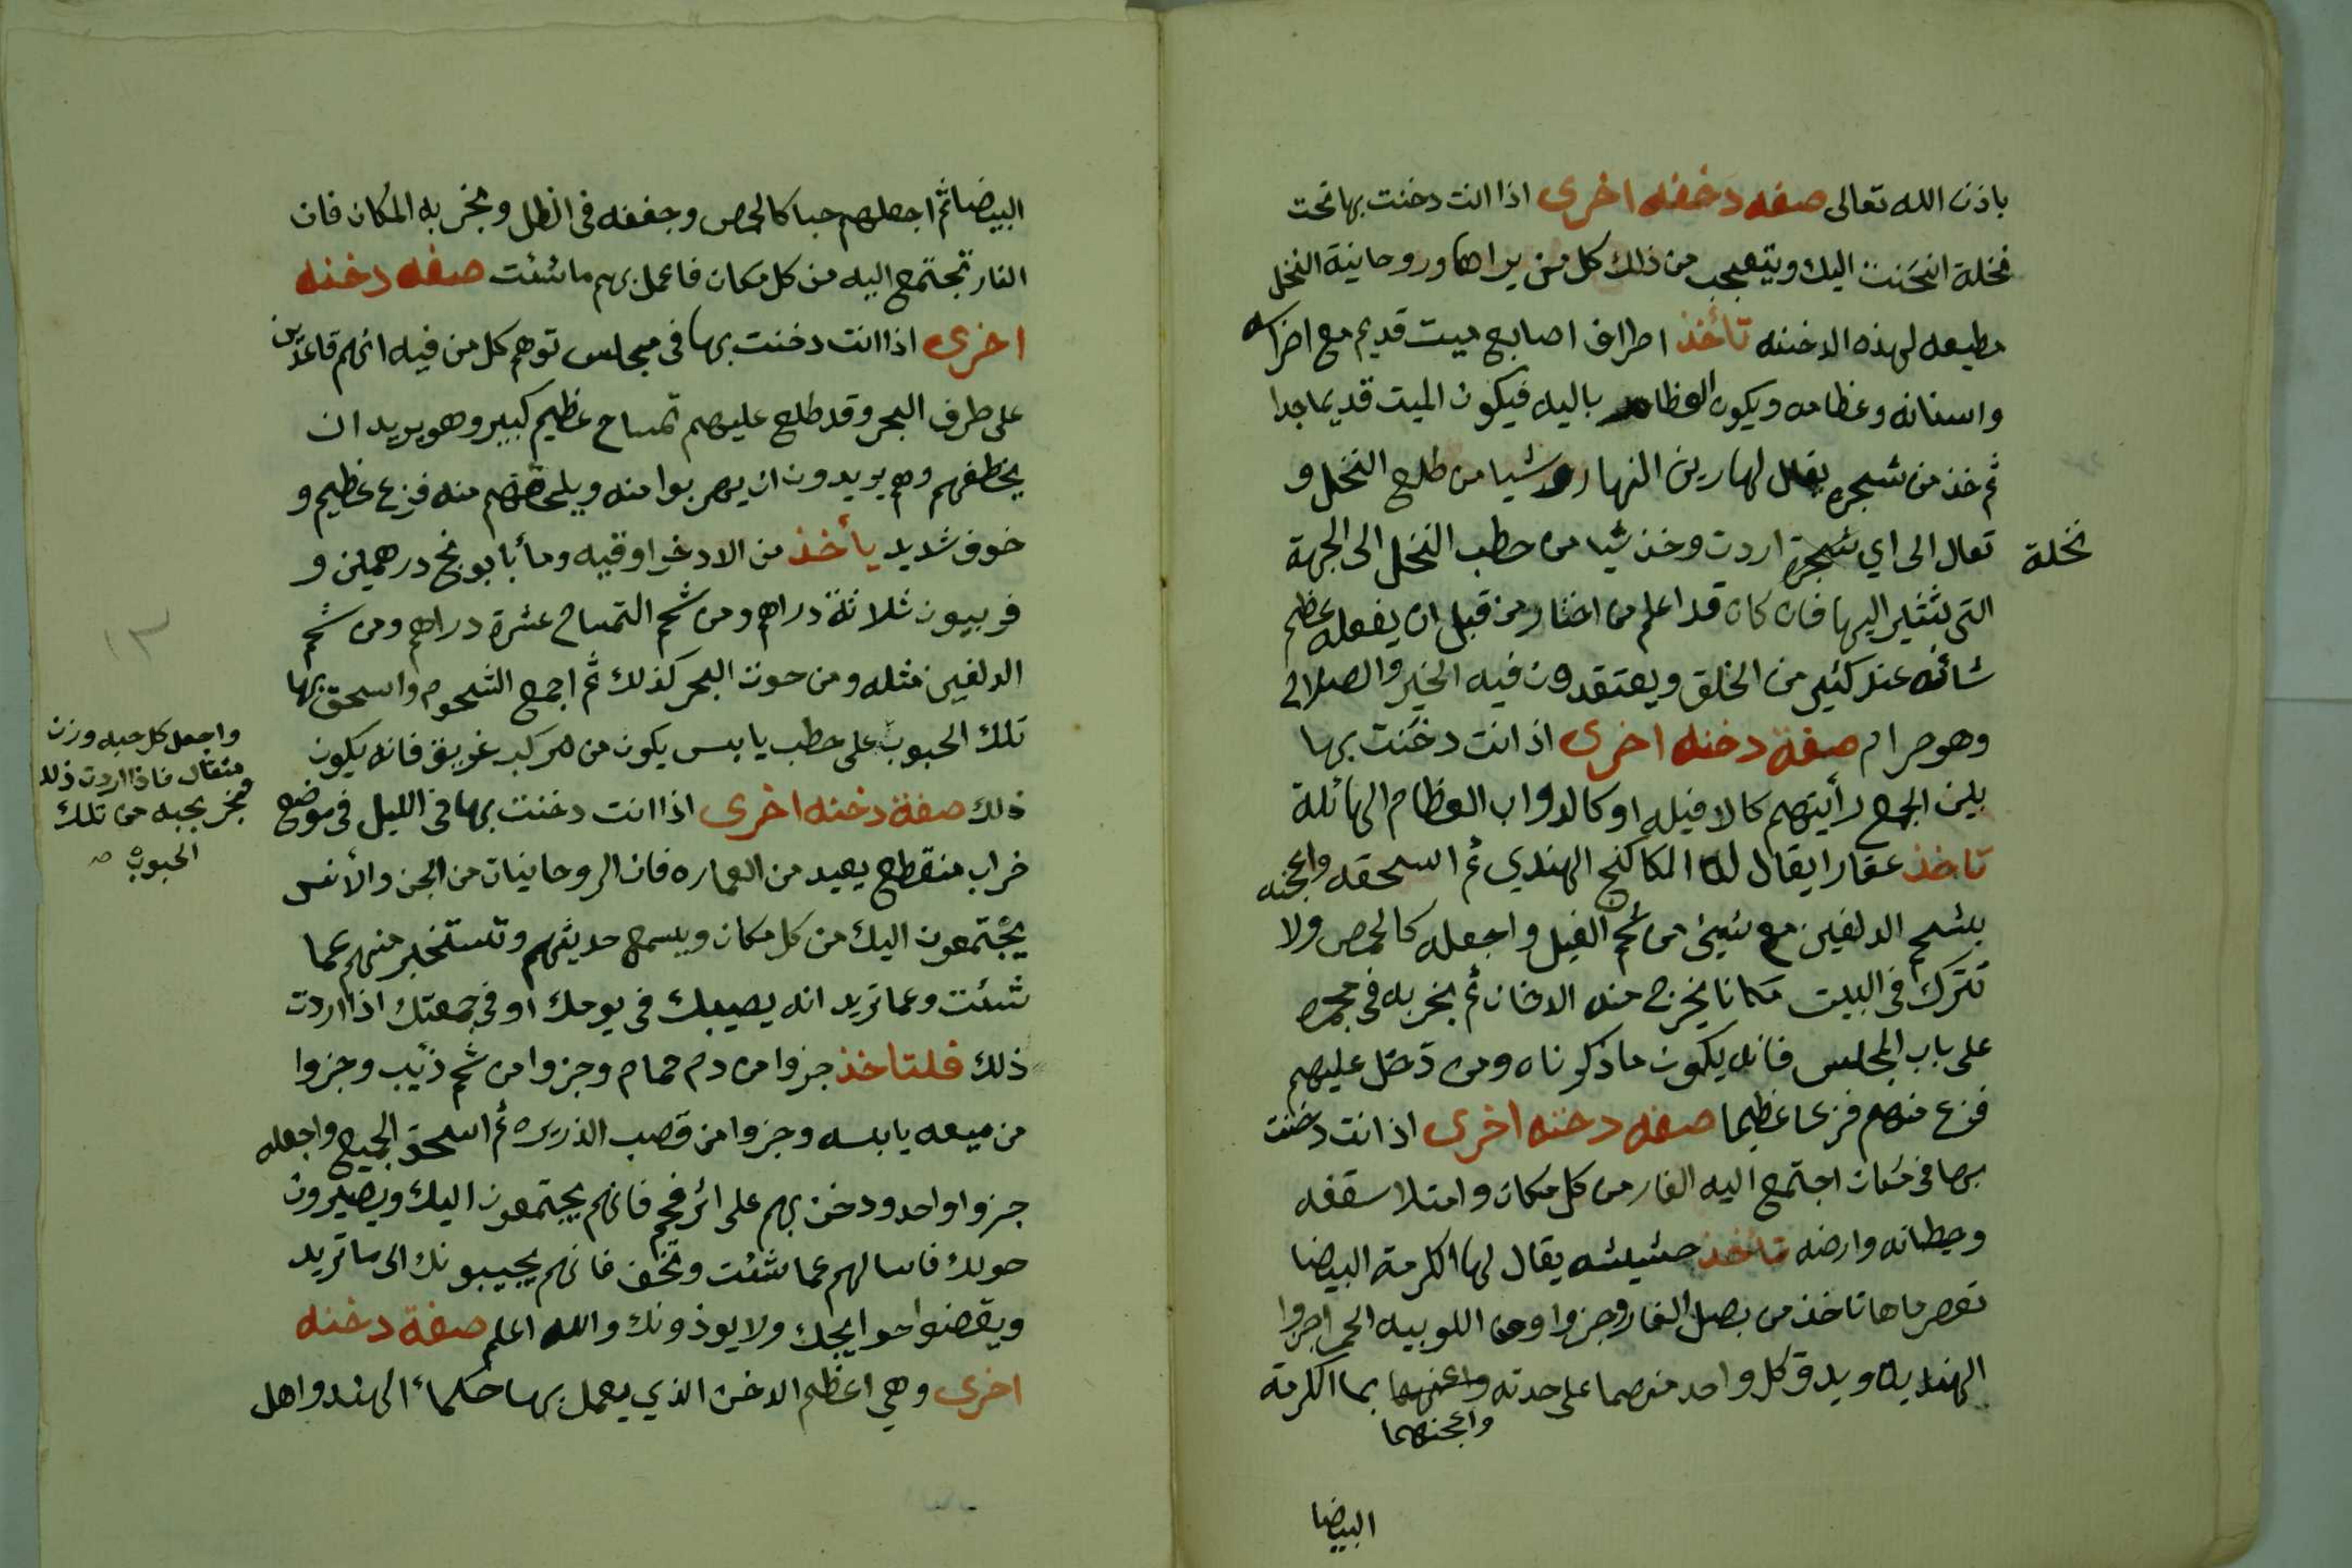 باذن الله تعالى صفه دخنه اخرى اذا انت دخنت بها تحت
نخلة انحنت اليك ويتعجب من ذلك كل من يراها وروحانية النخل
مطيعه لهذه الدخنه تأخذ اطراف اصابع ميت قديم مع اضراسه
واسنانه وعظامه ويكون العظام باليه فيكون الميت قديما جدا
ثم خذ من شجره يقال لها رين النهار وشيا من طلع النخل و
تعال الى اي شجرة اردت وخذ شيا من حطب النخل الى الجهة
نخلة
التي تشير اليها فان كان قد اعلم من اختار من قبل ان يفعله عظم
شانه عند كثير من الخلق ويعتقدون فيه الخير والصلاح
وهو حرام صفة دخنه اخرى اذ انت دخنت بها
بين الجمع رأيتهم كالافيله او كالدواب العظام الهائلة
تاخذ عقارا يقال له الكاكنج الهندي ثم اسحقه واعجنه
بشحم الدلفين مع شيئ من شحم الفيل واجعله كالحمص ولا
تترك في البيت مكانا يخرج منه الدخان ثم بخر به في مجمره
على باب المجلس فانه يكون ما ذكرناه ومن دخل عليهم
فزع منهم فزعا عظيما صفه دخنه اخرى اذ انت دخنت
بها في مكان اجتمع اليه الفار من كل مكان وامتلا سقفه
وحيطانه وارضه تاخذ حشيشه يقال لها الكرمة البيضا
تعصر ماها تاخذ من بصل الفار وجزوا ومن اللوبيه الحمر اجزوا
الهنديه ويدق كل واحد منهما على حدته بما الكرمة
واعجنهما
البيضا
البيضا ثم اجعلهم حبا كالحمص وجففه في الظل وبخر به المكان فان
الفار تجتمع اليه من كل مكان فاعمل بهم ما شئت صفه دخنه
اخرى اذا انت دخنت بها في مجلس توهم كل من فيه انهم قاعدين
على طرف البحر وقد طلع عليهم تمساح عظيم كبير وهو يريد ان
يخطفهم وهم يريدون ان يهربوا منه ويلحقهم منه فزع عظيم و
خوف شديد يأخذ من الاذخر اوقيه ومأ بابونج درهمين و
فربيون ثلاثة دراهم ومن شحم التمساح عشرة دراهم ومن شحم
الدلفين مثله ومن حوت البحر كذلك ثم اجمع الشحوم واسحق بها
تلك الحبوب على حطب يابس يكون من مركب غريق فانه يكون
واجعل كل حبه وزن
مثقال فاذا اردت ذلك
فبخر بحبه من تلك
الحبوب صح
ذلك صفة دخنه اخرى اذا انت دخنت بها في الليل في موضع
خراب منقطع بعيد من العماره فان الروحانيات من الجن والأنس
يجتمعون اليك من كل مكان ويسمع حديثهم وتستخبر منهم عما
شئت وعما تريد انه يصيبك في يومك او في جمعتك اذا اردت
ذلك فلتاخذ جزوا من دم حمام وجزوا من شحم ذئيب وجزوا
من ميعه يابسه وجزوا من قصب الذريره ثم اسحق الجميع واجعله
جزوا واحد ودخن بهم على اثر فحم فانهم يجتمعون اليك ويصيرون
حولك فاسالهم عما شئت وتخف فانهم يجيبونك الى ما تريد
ويقضوا حوايجك ولا يوذونك والله اعلم صفة دخنه
اخرى وهي اعظم الدخن الذي يعمل بها حكماء الهند واهل
١٣